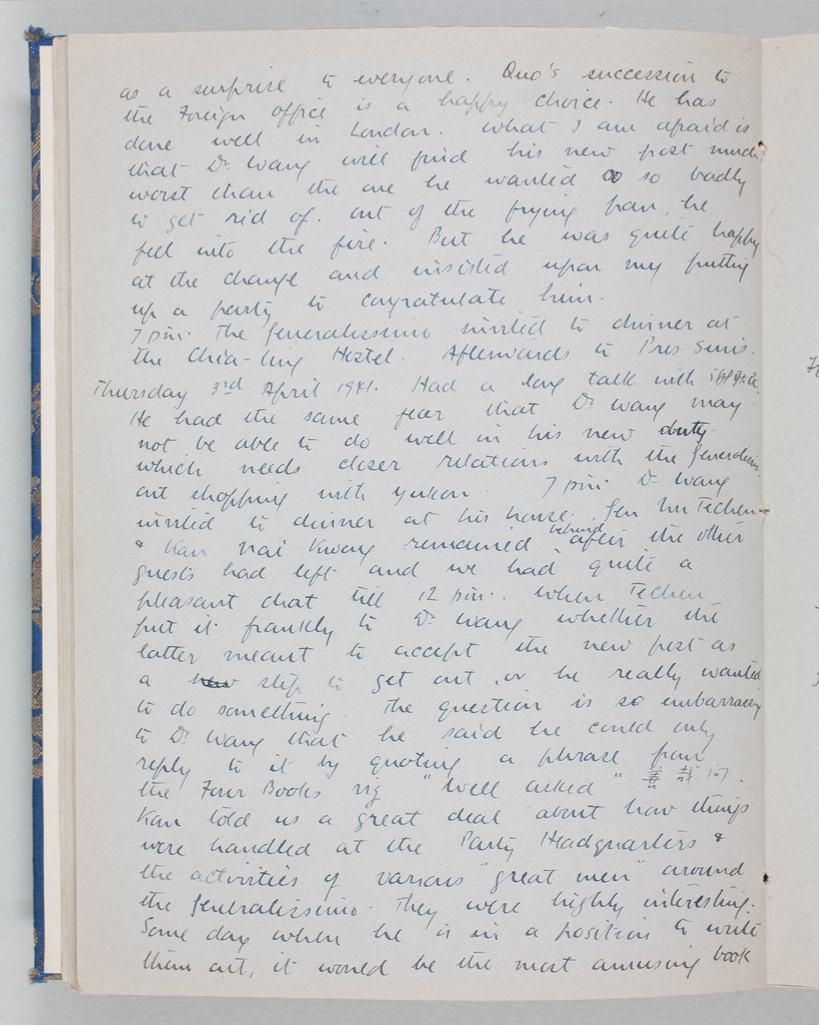 as a surprise to everyone. Quo's succession to
the Foreign office is a happy choice. He has
done well in London. What I am afraid is
that Dr. Wang will find his new post much
worst than the one he wanted so badly
to get rid of. out of the frying pan, he
fell into the fire. But he was quite happy
at the change and insisted upon my putting
up a party to congratulate him.
7 p.m. The Generalissimo invited to dinner at
the Chia-ling Hostel. Afterwards to Pres
Thursday 3rd April 1941. Had a long talk with
He had the same fear that Dr. Wang may
not be able to do well in his new duty
which needs closer relations with the Generalissimo
out shopping with 7 p.m. Dr. Wang
invited to dinner at his house. Gen Wu Techen
& Kan Nai Kwang remained behind after the other
guests had left and we had quite a
pleasant chat till 12 p.m. when Techen
put it frankly to Dr. Wang whether the
latter meant to accept the new post as
a step to get out, or he really wanted
to do something. The question is so embarrassing
to Dr. Wang that he said he could only
reply to it by quoting a phrase from
the Four Books viz "Well asked" 善哉问.
Kan told us a great deal about how things
were handled at the Party Headquarters &
the activities of various "great men" around
the Generalissimo. They were highly interesting.
Some day when he is in a position to write
them out, it would be the most amusing book